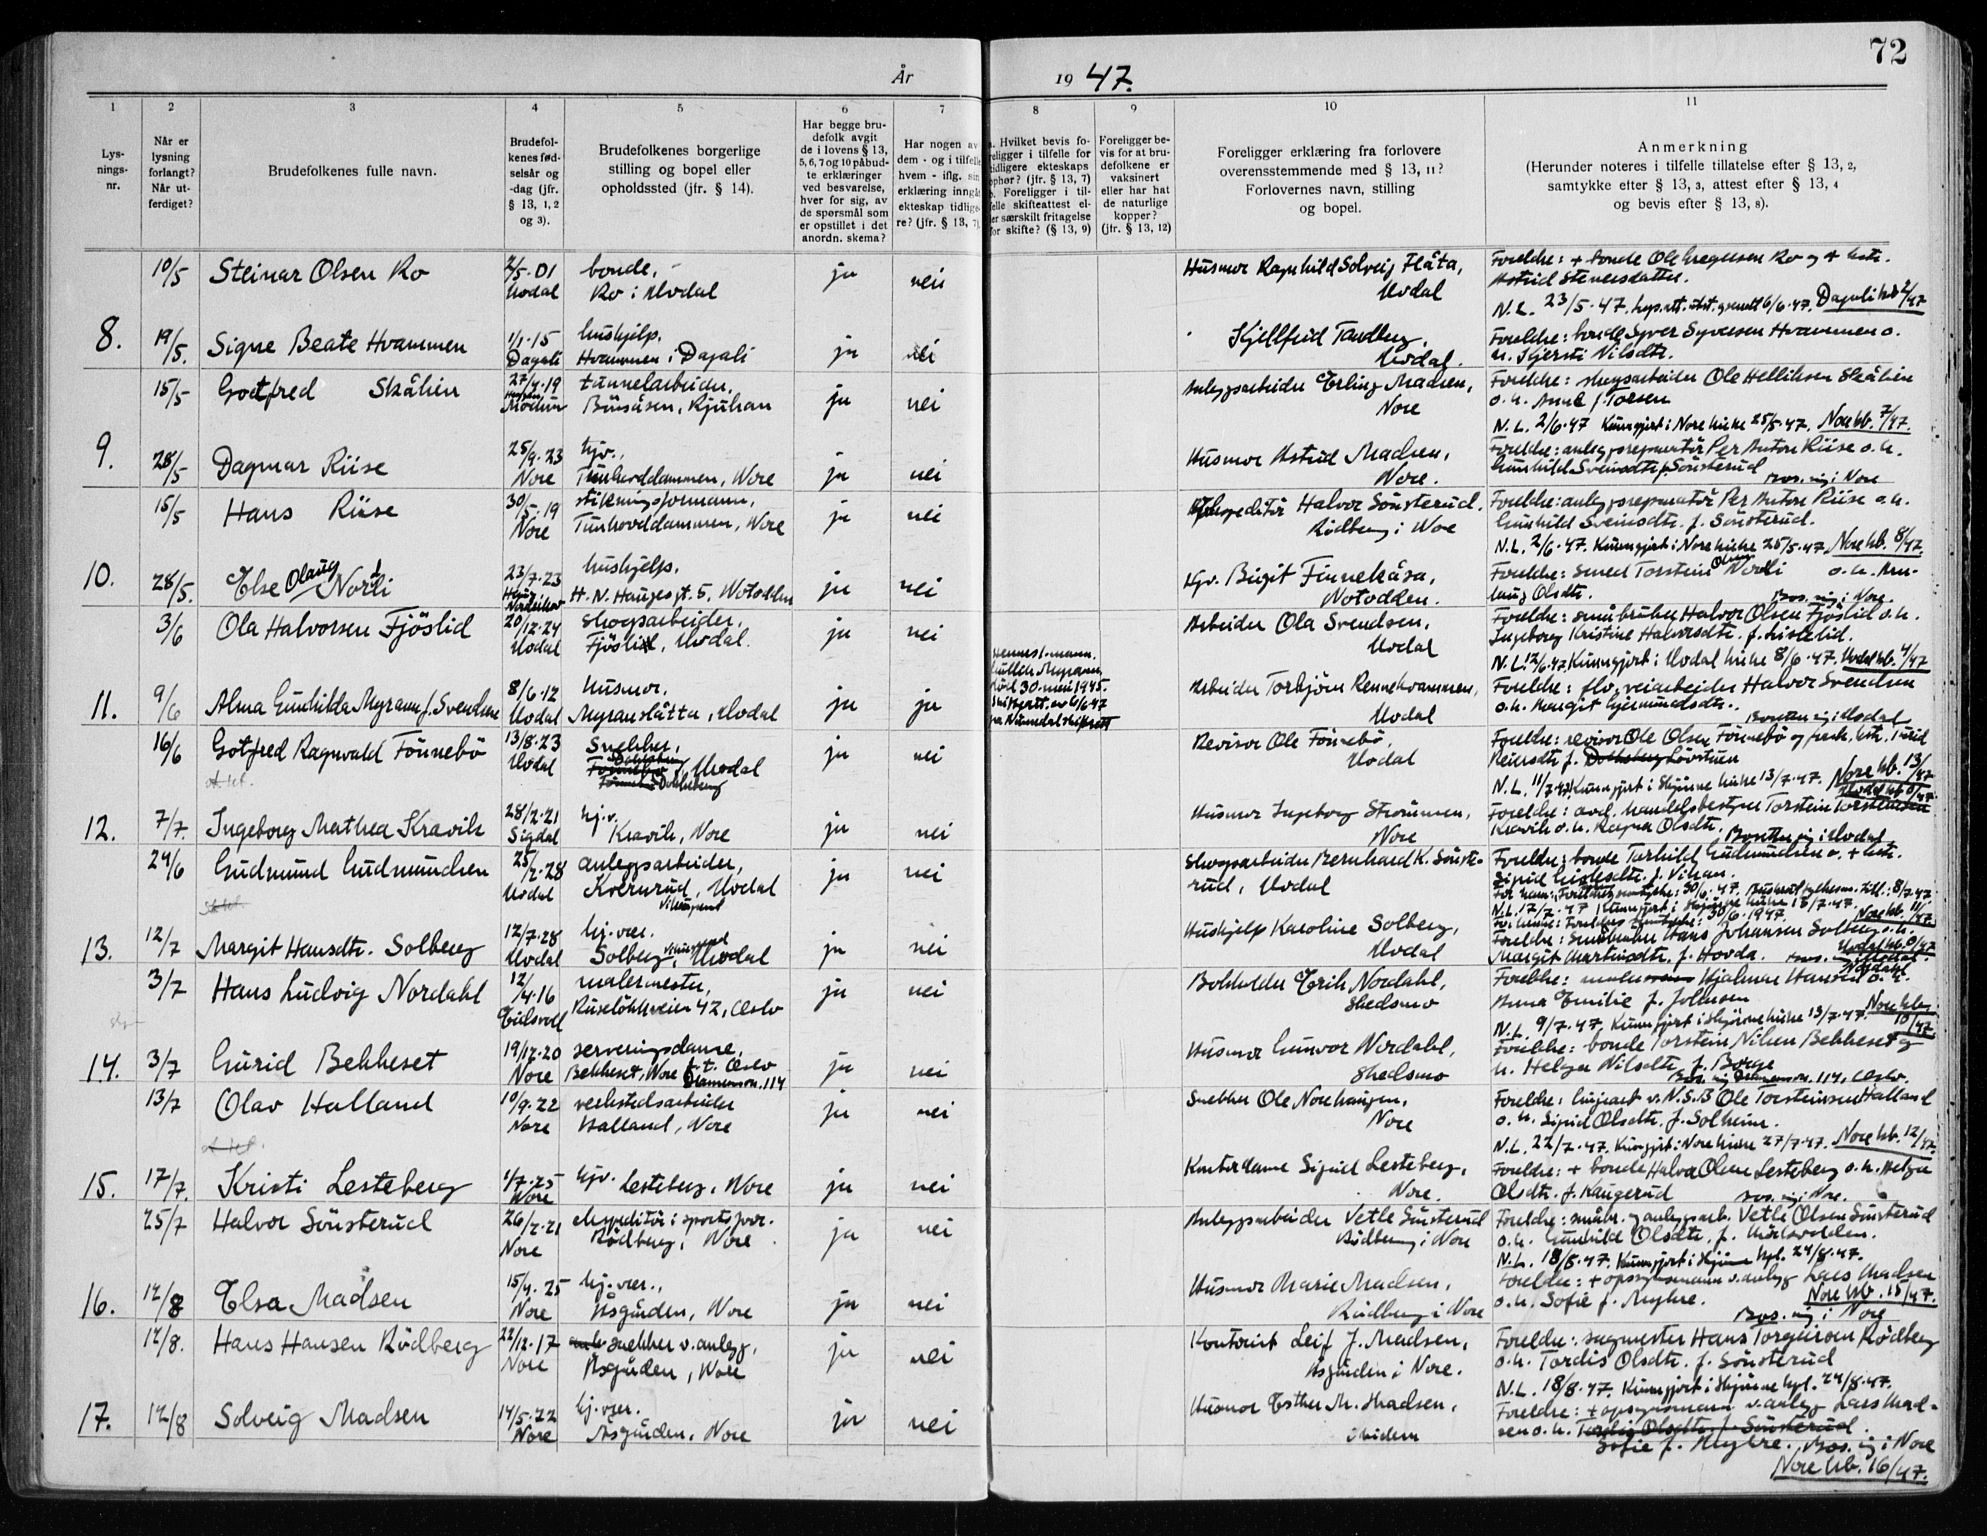 72
År 1947.
1
2
3
4
5
6
7
8
9
10
11
Lys-
nings-
nr.
Når er
lysning
forlangt?
Når ut-
ferdiget?
Brudefolkenes fulle navn.
Brudefol-
kenes fød-
selsår og
-dag (jfr.
§ 13, 1, 2
og 3).
Brudefolkenes borgerlige
stilling og bopel eller
opholdssted (jfr. § 14).
Har begge bru-
defolk avgit
de i lovens § 13,
5, 6, 7 og 10 påbud-
te erklæringer
ved besvarelse,
hver for sig, av
de spørsmål som
er opstillet i det
anordn. skema?
Har nogen av
dem - og i tilfelle
hvem - iflg. sin
erklæring inngått
ekteskap tidlige-
re? (jfr. § 13, 7)
a. Hvilket bevis fo-
religger i tilfelle for
tidligere ekteskaps
ophør? (jfr. § 13, 7)
b. Foreligger i til-
felle skifteattest el-
ler særskilt fritagelse
for skifte? (§ 13, 9)
Foreligger be-
vis for at bru-
defolkene er
vaksinert
eller har hat
de naturlige
kopper?
(jfr. § 13, 12)
Foreligger erklæring fra forlovere
overensstemmende med § 13, 11?
Forlovernes navn, stilling
og bopel.
Anmerkning
(Herunder noteres i tilfelle tillatelse efter § 13, 2,
samtykke efter § 13, 3, attest efter § 13, 4
og bevis efter § 13, 8).
10/5 Steinar Olsen Ro 2/5-01 bonde, ja nei Husmor Ragnhild Solveig Flåta,
Uvdal Ro i Uvdal Uvdal
Foreldre: + bonde Ole Gregersen Ro og + hstr.
Astrid Steinersdatter.
N.L. 23/5-47. Dagali kb 2/47
8. 19/5. Signe Beate Hvammen 1/1-15 hushjelp. ja nei Kjellfrid Tandberg,
Dagali Hvammen i Dagali Uvdal.
Foreldre: bonde Syver Syversen Hvammen o.
h. Kjersti Nilsdtr.
15/5 Gotfred Skålien 27/4-19 tunnelarbeider. ja nei Anleggsarbeider Erling Madsen,
Modum Busåsen, Rjukan Nore
Foreldre: skogsarbeider Ole Helliksen Skålien
o.h. Anne f. Torsen
N.L. 2/6-47 Kunngjort i Nore kirke 25/5-47. Nore kb. 7/47.
9. 28/5 Dagmar Riise 25/9-23 hjv., ja nei Husmor Astrid Madsen,
Nore Tunhovddammen, Nore Nore.
Foreldre: anleggsreparatør Per Anton Riise o.h.
Gunhild Sveinsdtr. f. Sønsterud
Bos. sig i Nore
15/5 Hans Riise 30/5-19 stikningsformann, ja nei Ekspeditør Halvor Sønsterud.
Nore Tunhovddammen, Nore Rødberg i Nore
Foreldre: anleggsreparatør Per Anton Riise o.h.
Gunhild Sveinsdtr. f. Sønsterud.
N.L. 2/6-47. Kunngjort i Nore kirke 25/5-47. Nore kb. 8/47.
10. 28/5. Else Olaug Norli 23/7-23 hushjelp. ja nei Hjv. Birgit Finnekåsa,
H. N. Hauges gt. 5, Notodden Notodden.
Foreldre: smed Torstein Olsen Norli o.h. An-
laug Olsdtr.
Bos. sig i Nore.
3/6 Ola Halvorsen Fjöslid 20/12-24 skogsarbeider, ja nei Arbeider Ola Svendsen,
Uvdal Fjöslid, Uvdal. Uvdal
Foreldre: småbruker Halvor Olsen Fjöslid o.h.
Ingeborg Kristine Halvorsdtr. f. Listelid.
N.L. 12/6-47. Kunngjort i Uvdal kirke 8/6-47. Uvdal kb. 4/47
11. 9/6 Alma Gunhilda Myrann f. Svendsen 8/6-12 Husmor. ja ja
Uvdal Myranslåtta, Uvdal
Hennes f. mann.
Gullek Myrann,
død 30. mai 1945.
Skifteatt. av 6/6 47
fra Numedal skifterett
Arbeider Torbjörn Rennehvammen,
Uvdal
Foreldre: flv. veiarbeider Halvor Svendsen
o.h. Margit Gjermundsdtr.
Bosetter sig i Uvdal
16/6 Gotfred Ragnvald Fönnebö 13/8-23 Snekker, ja nei Revisor Ole Fönnebö,
Uvdal Uvdal Uvdal
Foreldre: revisor Ole Olsen Fönnebö
N.L. 11/7-47. Kunngjort i Skjönne kirke 13/7-47. Nore kb. 13/47
12. 7/7. Ingeborg Mathea Kravik 28/2-21 hj.v. ja nei Husmor Ingeborg Strømmen,
Sigdal Kravik, Nore Nore
Foreldre: avd. handelsbestyrer Torstein Torsteinsen
Kravik o.h. Ragna Olsdtr. Bosetter sig i Uvdal
24/6 Gudmund Gudmundsen 25/2-28 anleggsarbeider, ja nei Skogsarbeider Bernhard K. Sönste-
Uvdal Kvernrud, Uvdal rud, Uvdal
Foreldre: bonde Tarkild Gudmundsen o. + hstr.
N.L. 17/7-47
13. 12/7 Margit Hansdtr. Solberg 12/7-28 hj.vær. ja nei Hushjelp Karoline Solberg,
Uvdal Solberg, Uvdal Uvdal
Foreldre: småbruker Hans Johansen Solberg o.h.
Margit Martinsdtr. f. Hovda.
3/7 Hans Ludvig Nordahl 12/4-16 malermester, ja nei Bokholder Erik Nordahl,
Eidsvoll Ruseløkkveien 42, Oslo Skedsmo
Foreldre: Hjalmar Hansen o.h.
Anna Emilie f. Johnsen
N.L. 9/7-47. Kunngjort i Skjönne kirke 13/7-47. Nore kb. 10/47.
14. 3/7 Gurid Bekkeset 19/12-20 serveringsdame, ja nei Husmor Gunvor Nordahl,
Nore Bekkeset, Nore f.t. Oslo Skedsmo
Foreldre: bonde Torstein Nilsen Bekkeset og
h. Helga Nilsdtr. f. Borge
13/7 Olav Halland 10/9-22 verkstedsarbeider ja nei Snekker Ole Norehaugen,
Nore Halland, Nore Nore
Foreldre: Ole Torsteinsen Halland
o.h. Sigrid Olsdtr. f. Solheim.
N.L. 22/7-47. Kunngjort i Nore kirke 27/7-47. Nore kb. 12/47.
15. 17/7. Kristi Lesteberg 4/7-25 hjv. ja nei Kontordame Sigrid Lesteberg,
Nore Lesteberg, Nore Nore.
Foreldre: + bonde Halvor Olsen Lesteberg o.h. Helga
Olsdtr. f. Haugerud Bos. sig i Nore.
25/7 Halvor Sönsterud 26/2-21 ekspeditör i sportsforr. ja nei Anleggsarbeider Vetle Sönsterud
Nore Rödberg, Nore. Rödberg i Nore
Foreldre: småbr. og anleggsarb. Vetle Olsen Sönsterud
o.h. Gunhild Olsdtr.
N.L. 18/8-47. Kunngjort i Skjönne kpl. 24/8-47.
16. 12/8 Elsa Madsen 15/4-25 hj.vær., ja nei Husmor Marie Madsen,
Nore Åsgården, Nore Rödberg i Nore
Foreldre: + opsynsmann v. anlegg Lars Madsen
o.h. Sofie f. Myhre. Nore kb. 15/47.
Bos. sig i Nore
12/8. Hans Hansen Rödberg 22/12-17 snekker v. anlegg, ja nei Kontorist Leif J. Madsen,
Nore Åsgården, Nore Åsgården i Nore.
Foreldre: sagmester Hans Torgeirsen Rødberg
o.h. Tordis Olsdtr. f. Sönsterud
N.L. 18/8-47. Kunngjort i Skjönne kpl. 24/8-47.
17. 12/8 Solveig Madsen 14/5-22 hj.vær. ja nei Husmor Esther M. Madsen,
Nore Åsgården, Nore ibidem
Foreldre: + opsynsmann v. anlegg Lars Mad-
sen o.h. Tordis Olsdtr. f. Sönsterud.
Sofie f. Myhre. Bos. sig i Nore
Nore kb. 16/47.